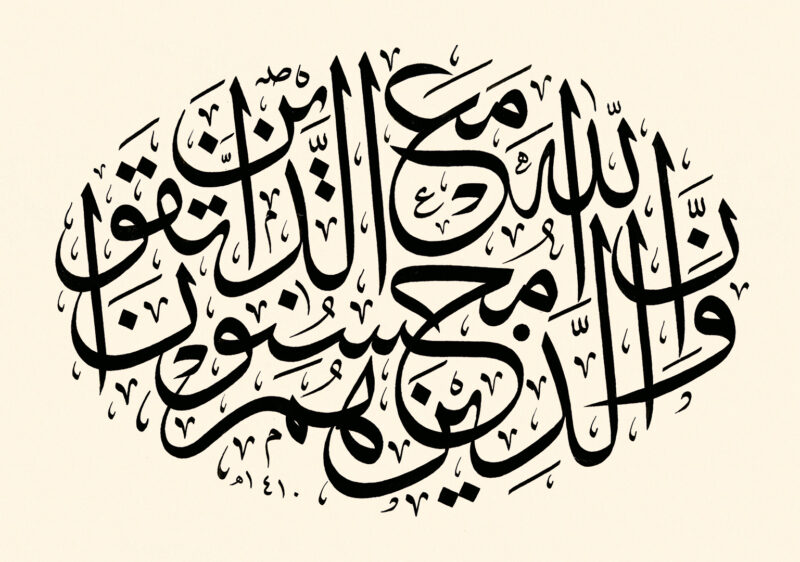 إِنَّ اللّٰهَ مَعَ الَّذِينَ اتَّقَوا
وَّالَّذِينَ هُم مُّحْسِنُونَ
١٤١٠هـ